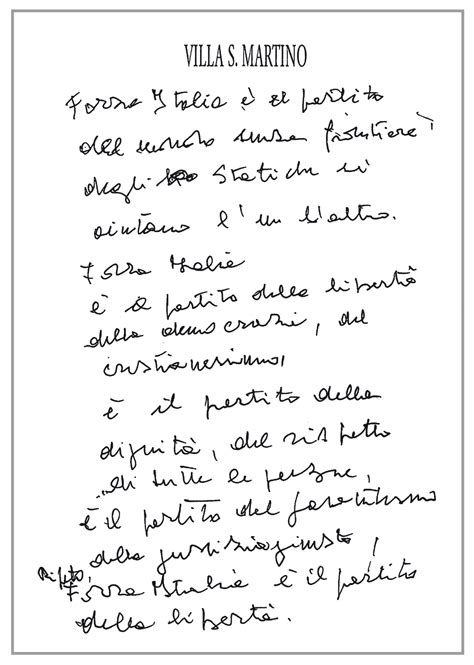 VILLA S. MARTINO
Forza Italia è il partito
del mondo senza frontiere
degli Stati che si
aiutano l'un l'altro.
Forza Italia
è il partito della libertà
della democrazia, del
cristianesimo,
è il partito della
dignità, del rispetto
di tutte le persone,
è il partito del garantismo
della giustizia giusta,
Ripeto,
Forza Italia è il partito
della libertà.